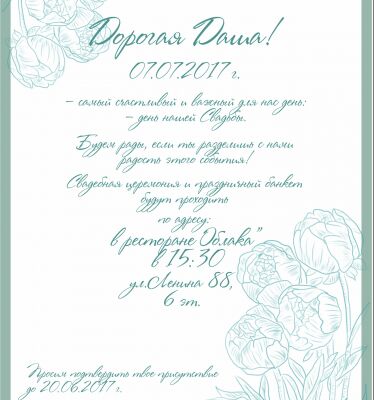 Дорогая Даша!
07.07.2017 г.
– самый счастливый и важный для нас день:
– день нашей Свадьбы.
Будем рады, если ты разделишь с нами
радость этого события!
Свадебная церемония и праздничный банкет
будут проходить
по адресу:
в ресторане Облака"
в 15:30
ул.Ленина 88,
6 эт.
Просим подтвердить твое присутствие
до 20.06.2017 г.